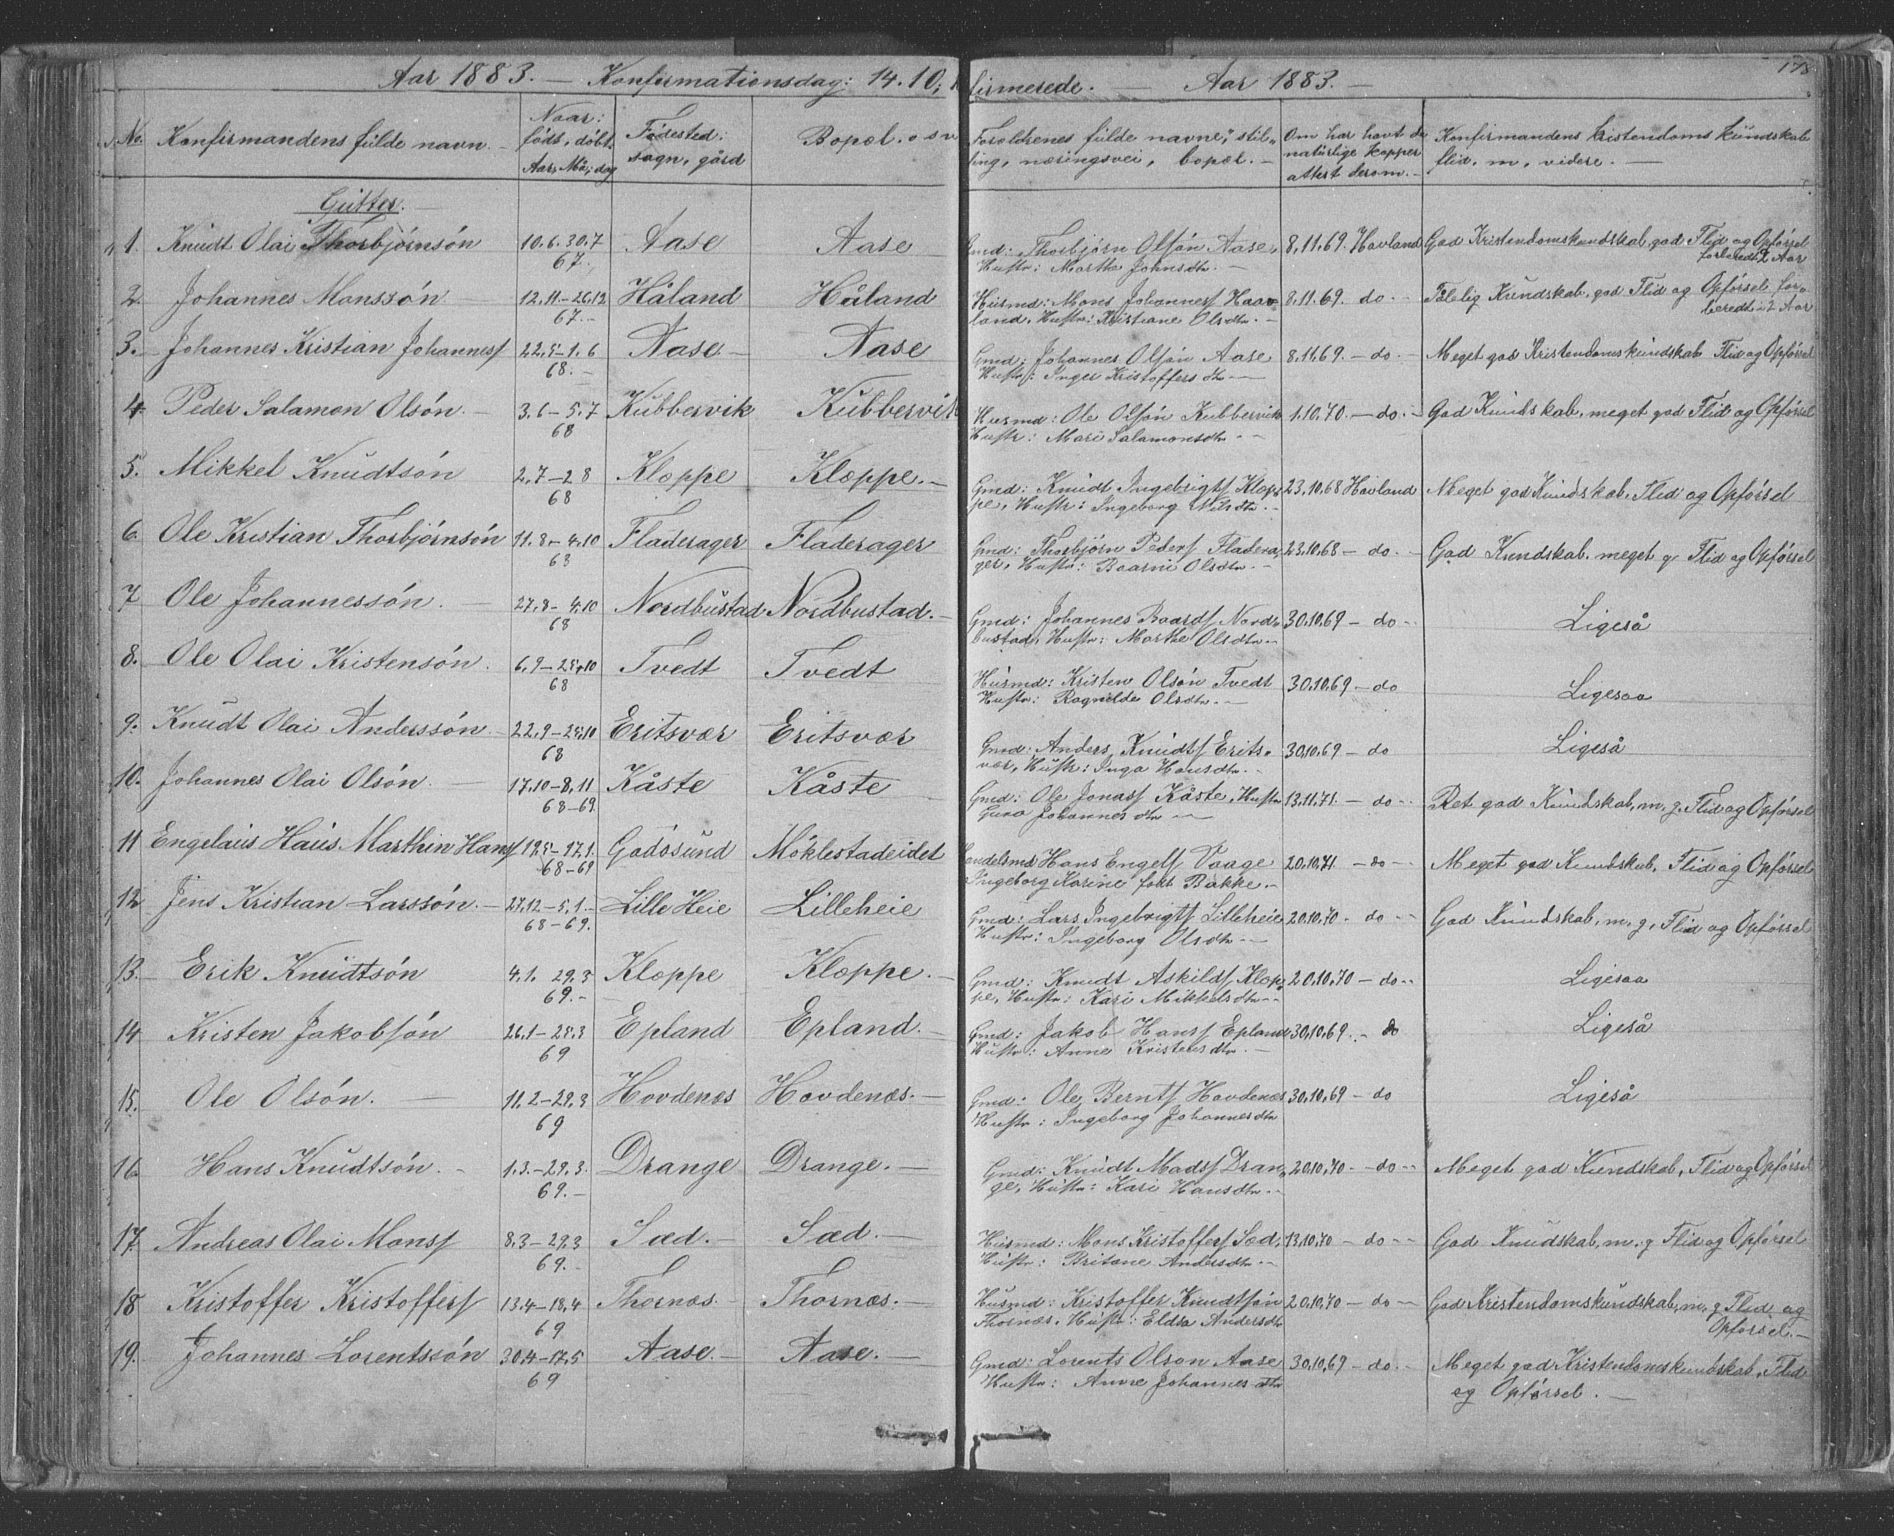 Aar 1883. — Konfirmationsdag: 14.10,
No. Konfirmandens fulde navn. Naar: født, døbt. Aar, Må; dag Fødested: sogn, gård Bopæl. o s v
Gutter.
1. Knudt Olai Thorbjørnsón 10.6. 30.7 67. Aase Aase
2. Johannes Monssón 12.11–26.12 67. Håland Håland
3. Johannes Kristian Johannesſ 22.5–1.6 68. Aase Aase
4. Peder Salamon Olsón. 3.6–5.7 68 Kubbervik Kubbervik
5. Mikkel Knudtsón 2.7–2.8 68 Klæppe Klæppe.
6. Ole Kristian Thorbjørnsón 11.8–4.10 63 Fladerager Fladerager
7. Ole Johannessón. 27.8–4.10 68 Nordbustad Nordbustad.
8. Ole Olai Kristensón. 6.9–25.10 68 Tvedt Tvedt
9. Knudt Olai Anderssón. 22.9–25.10 68 Eritsvær Eritsvær
10. Johannes Olai Olsón. 17.10–8.11 68–69 Kåste Kåste
11 Engelaus Haus Marthin Hansſ 68–69 Godósund Móklestadeidet
12 Jens Kristian Larssón. 27.12–5.1 68–69. Lille Heie Lilleheie
13. Erik Knudtsón 4.1. 29.3 69. Klæppe Klæppe.
14 Kristen Jakobsón 26.1–28.3 69 Epland Epland.
15. Ole Olsón. 11.2–29.3 69 Hovdenæs Hovdenæs.
16 Hans Knudtsón. 1.3.–29.3. 69. Drange Drange.
17. Andreas Olai Monsſ 8.3–29.3 69. Sæd. Sæd.
18 Kristoffer Kristoffersſ 13.4–18.4 69 Thornæs. Thornæs.
19. Johannes Lorentssón 30.4–17.5 69 Aase. Aase.
firmerede. — Aar 1883. —
Foroldrenes fulde navne, stilling, næringsvei, bopæl. Om har havt de naturlige kopper attest derom. Konfirmandens kristendoms kundskab flid, m, videre.
Gmd: Thorbjørn Olsón Aase, 8.11.69. Havland God Kristendomskundskab, god Flid og Opførsel
Hustr: Marthe Johnsdtr. forberedt 2 Aar
Husmd: Mons Johannesſ Haav- 8.11.69. do. Tålelig Kundskab, god Flid og Opførsel, for-
land, Hustr: Kristiane Olsdtr. beredt i 2 Aar
Gmd: Johannes Olsón Aase 8.11.69. – do. Meget god Kristendomskundskab Flid og Opførsel
Hustr: Inger Kristoffersdtr
Husmd: Ole Olsón Kubbervik 1.10.70. – do. God Kundskab, meget god Flid og Opførsel
Hustr: Mari Salamonsdtr
Gmd: Knudt Ingebrigtſ Klep- 23.10.68 Havland Meget god Kundskab, Flid og Opførsel
pe, Hustr: Ingeborg Nilsdtr.
Gmd: Thorbjørn Pedersſ Fladera- 23.10.68 – do. God Kundskab. meget g Flid og Opførsel
ger, Hustr: Baarni Olsdtr.
Gmd: Johannes Baardſ Nord- 30.10.69 – do. Ligeså
bustad, Hustr: Marthe Olsdtr.
Husmd: Kristen Olsón Tvedt 30.10.69 – do Ligesaa
Hustr: Ragnilde Olsdtr.
Gmd: Anders Knudtſ Erits- 30.10.69 – do Ligeså
vær, Hustr: Inga Hansdtr.
Gmd: Ole Jonasſ Kåste, Hustr 13.11.71. – do Ret god Kundskab, m, g, Flid og Opførsel
Guro Johannesdtr
Handelsmd Hans Engelſ Vaage 20.10.71 – do Meget god Kundskab, Flid og Opførsel
Ingeborg Karine fokt Bakke.
Gmd: Lars Ingebrigtſ Lilleheie 20.10.70. do God Kundskab, m, g, Flid og Opførsel
Hustr: Ingeborg Olsdtr
Gmd: Knudt Askildſ Klep- 20.10.70 – do Ligesaa
pe, Hustr: Kari Mikkelsdtr
Gmd: Jakob Hansſ Epland 30.10.69. do Ligeså
Hustr: Anne Kristensdtr.
Gmd: Ole Berntſ Hovdenæs 30.10.69 – do Ligeså
Hustr: Ingeborg Johannesdtr
Gmd: Knudt Madsſ Dran- 20.10.70 – do Meget god Kundskab, Flid og Opførsel
ge, Hustr: Kari Hansdtr.
Husmd: Mons Kristoffersſ Sæd, 13.10.70 – do God Kundskab, m. g Flid og Opførsel
Hustr: Britane Andersdtr
Husmd: Kristoffer Knudtsón 20.10.70 – do God Kristendomskundskab, m, g Flid og
Thornæs, Hustr: Eldra Andersdtr Opførsel.
Gmd: Lorents Olson Aase 30.10.69 – do. Meget god Kristendomskundskab, Flid
Hustr: Anne Johannesdtr og Opførsel.